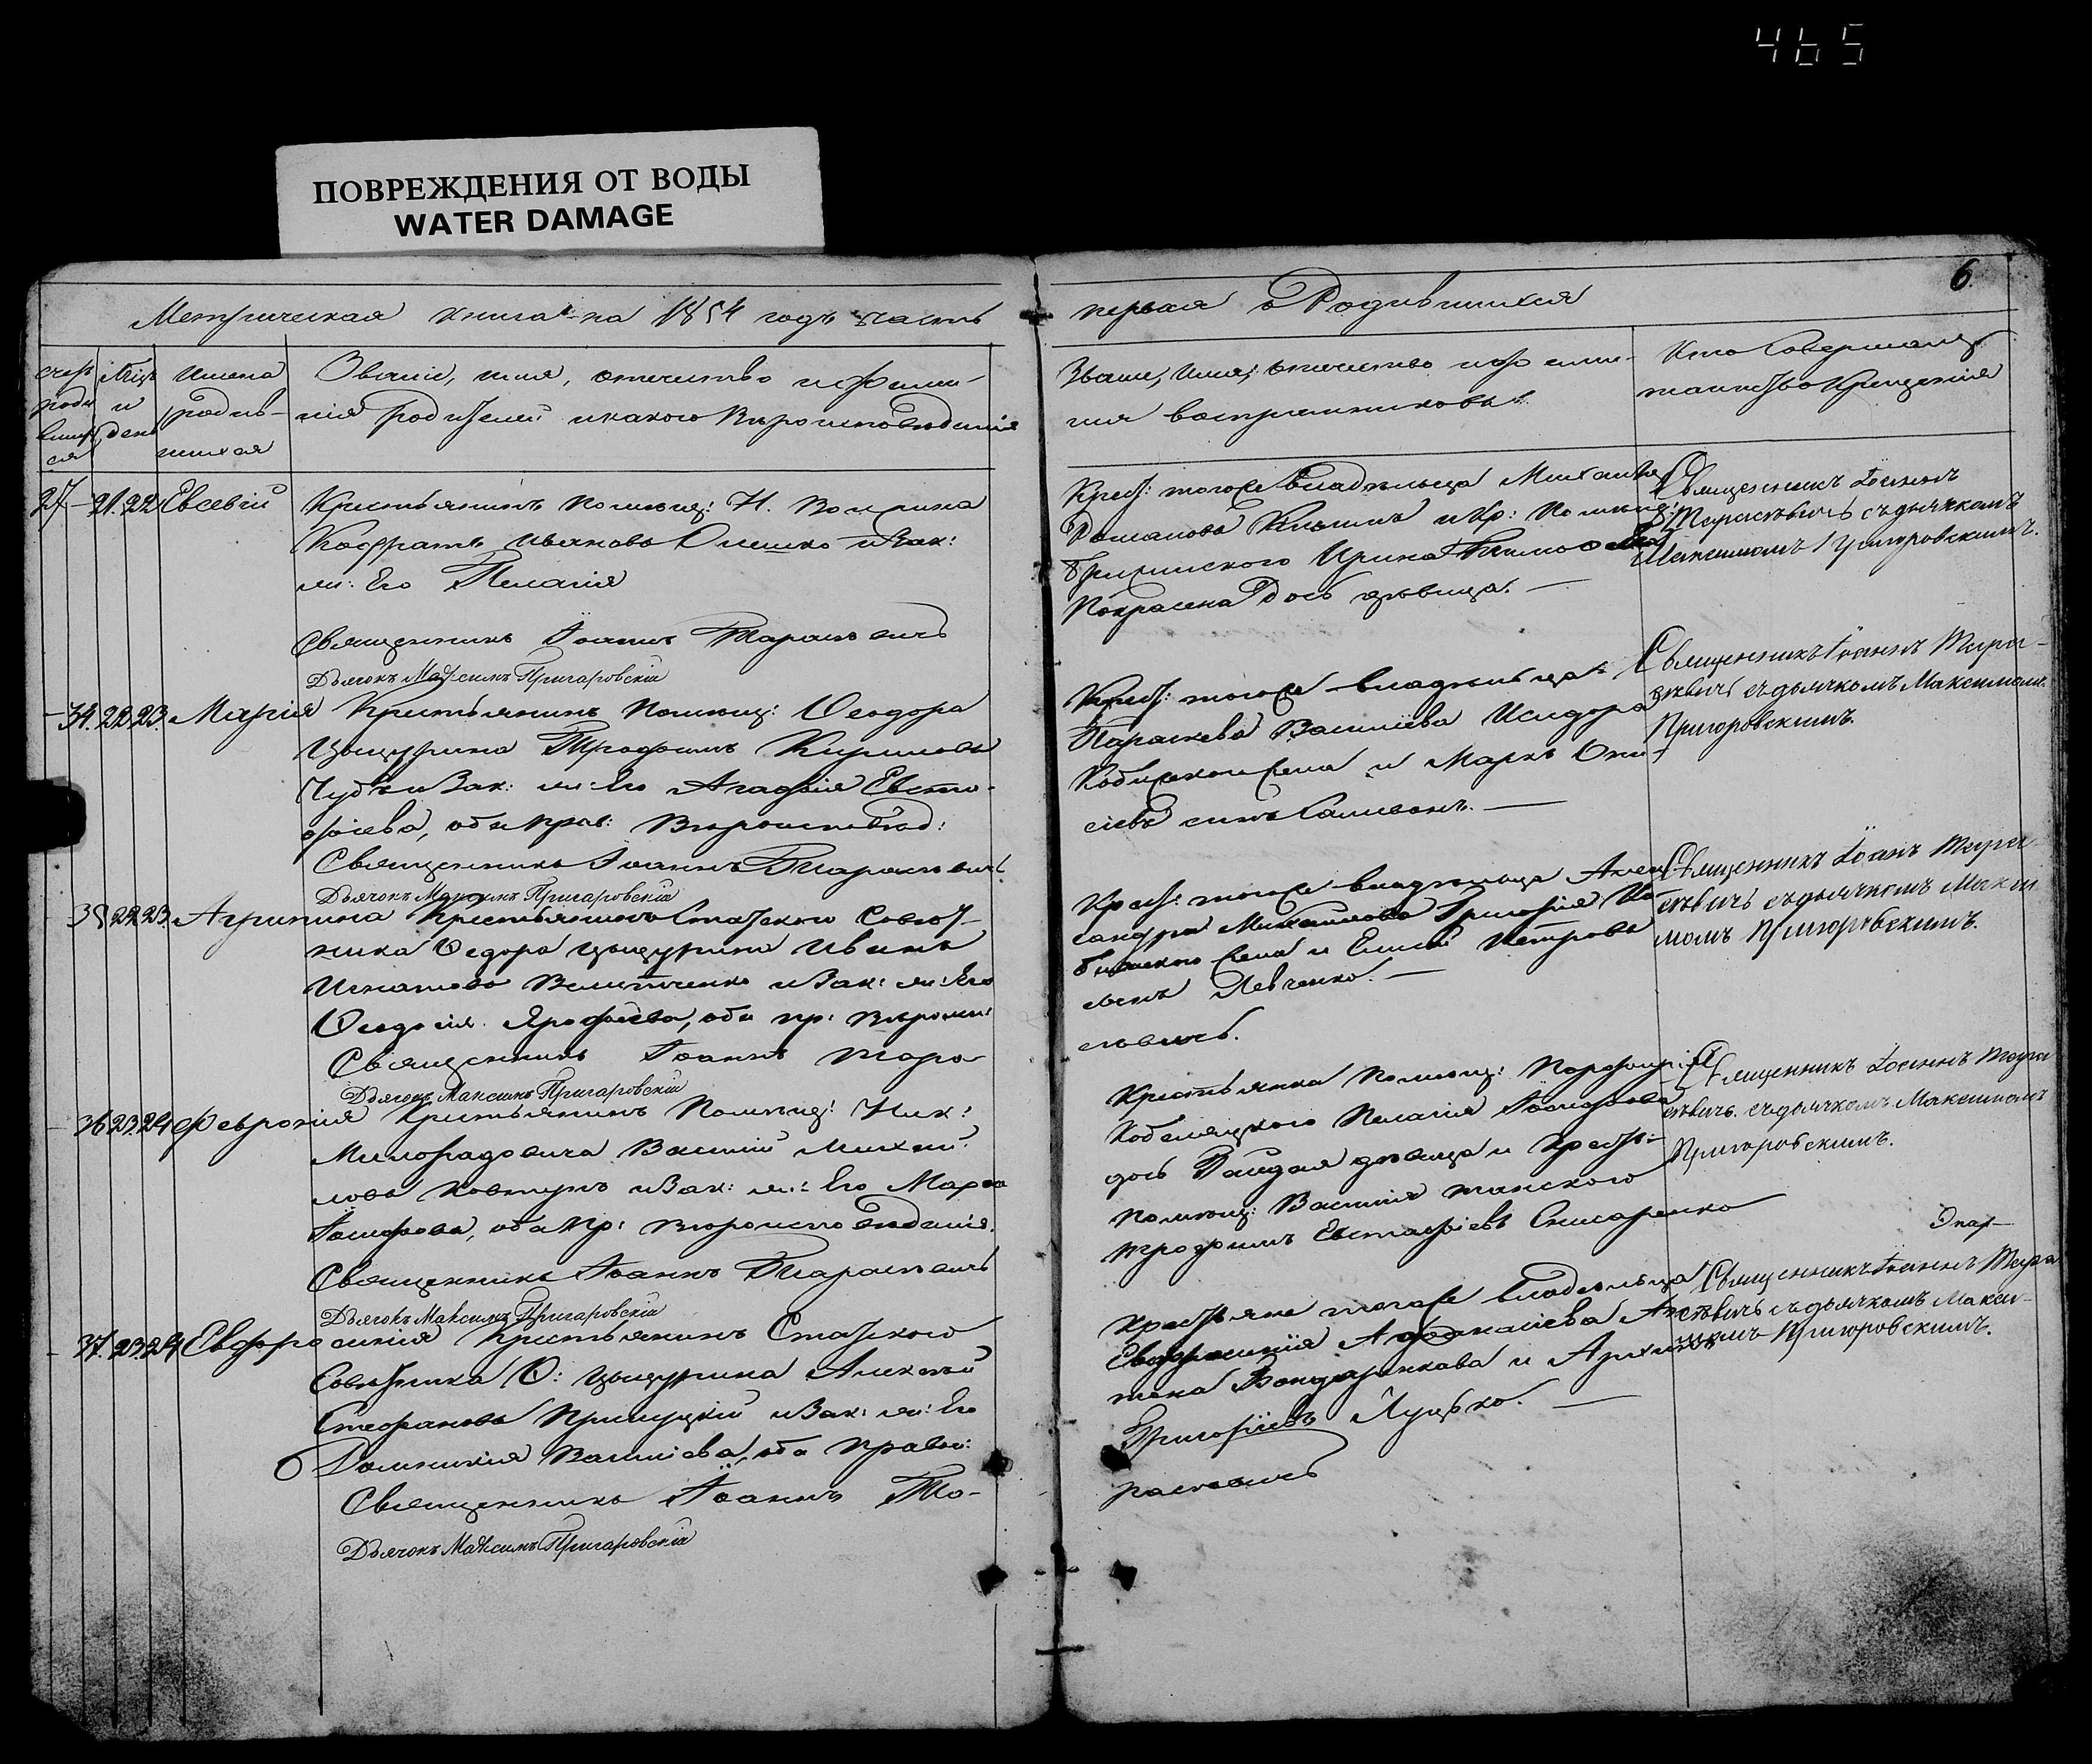 465
ПОВРЕЖДЕНИЯ ОТ ВОДЫ
WATER DAMAGE
6.
Метрическая книга на 1854 годъ часть
первая о Родившихся
Счетъ родившихся
Мѣцъ и день
Имена родив-
шихся
Званіе, имя, отечество и фами-
лія родителей и какого Вѣроисповѣданія
Званіе, имя, отечество и фами-
лія воспріемниковъ
Кто Совершалъ
таинство Крещенія
27 - 21. 22 Евсевій
Крестьянинъ помѣщ: Н.
Кодратъ Ивановъ Олешко и Зак:
ж: Его Пелагія
Священникъ Іоаннъ Тарасѣвичъ
Дьячокъ Максимъ Пригаровскій
Крест: тогоже владѣльца Михаилъ
Романовъ и Кр: помѣщ:
Ирина
дочь дѣвица. —
Священникъ Іоаннъ
Тарасѣвичъ съ дьячкомъ
Максимомъ Пригоровскимъ.
34. 22 23. Марія
Крестьянинъ Помѣщ: Ѳеодора
Цыцурина Трофимъ Кириловъ
Чубъ и Зак: ж: Его Агафія Евста-
фіева, оба прав: Вѣроисповѣд:
Священникъ Іоаннъ Тарасѣвичъ
Дьячокъ Максимъ Пригаровскій
Крест: тогоже владѣльца
Параскева Василіева Исидора
жена и Маркъ
сынъ —
Священникъ Іоаннъ Тара-
сѣвичъ съ дьячкомъ Максимомъ
Пригоровскимъ.
35 22 23. Агрипина
Крестьянинъ Статского Совѣт-
ника Ѳедора Цыцурина Иванъ
Игнатовъ и Зак: ж: Его
Ѳеодосія Ярофѣева, оба пр: Вѣроис:
Священникъ Іоаннъ Тара-
Дьячокъ Максимъ Пригаровскій
Крест: тогоже владѣльца Алек-
сандра Михайлова Григорія
жена и Елисей Петровъ
сынъ Левченко. —
сѣвичъ.
Священникъ Іоаннъ Тара-
сѣвичъ съ дьячкомъ Макси-
момъ Пригоровскимъ.
36 23 24 Февронія
Крестьянинъ Помѣщ: Ник:
Милорадовича Василій Михай-
ловъ Ковтунъ и Зак: ж: Его Марѳа
Іосифова, оба пр: Вѣроисповѣданія.
Священникъ Іоаннъ Тарасѣвичъ
Дьячокъ Максимъ Пригаровскій
Крестьянка помѣщ: Порфирія
Кобеляцкого Пелагія Іосифова
дочь Гайдая дѣвица и Крест:
помѣщ: Василія Танского
Трофимъ Евстафіевъ Снисаренко
Священникъ Іоаннъ Тара-
сѣвичъ съ дьячкомъ Максимомъ
Пригоровскимъ.
37. 23 24 Евфросинія
Крестьянинъ Статского
Совѣтника Ѳ: Цыцурина Алексѣй
Стефановъ Прилуцкій и Зак: ж: Его
Домникія Василіева, оба правос:
Священникъ Іоаннъ Та-
Дьячокъ Максимъ Пригаровскій
Крестьяне тогоже владѣльца
Евфросинія Афанасіева
жена Бондаренкова и
Григоріевъ Луцько. —
расѣвичъ
Священникъ Іоаннъ Тара-
сѣвичъ съ дьячкомъ Макси-
момъ Пригоровскимъ.